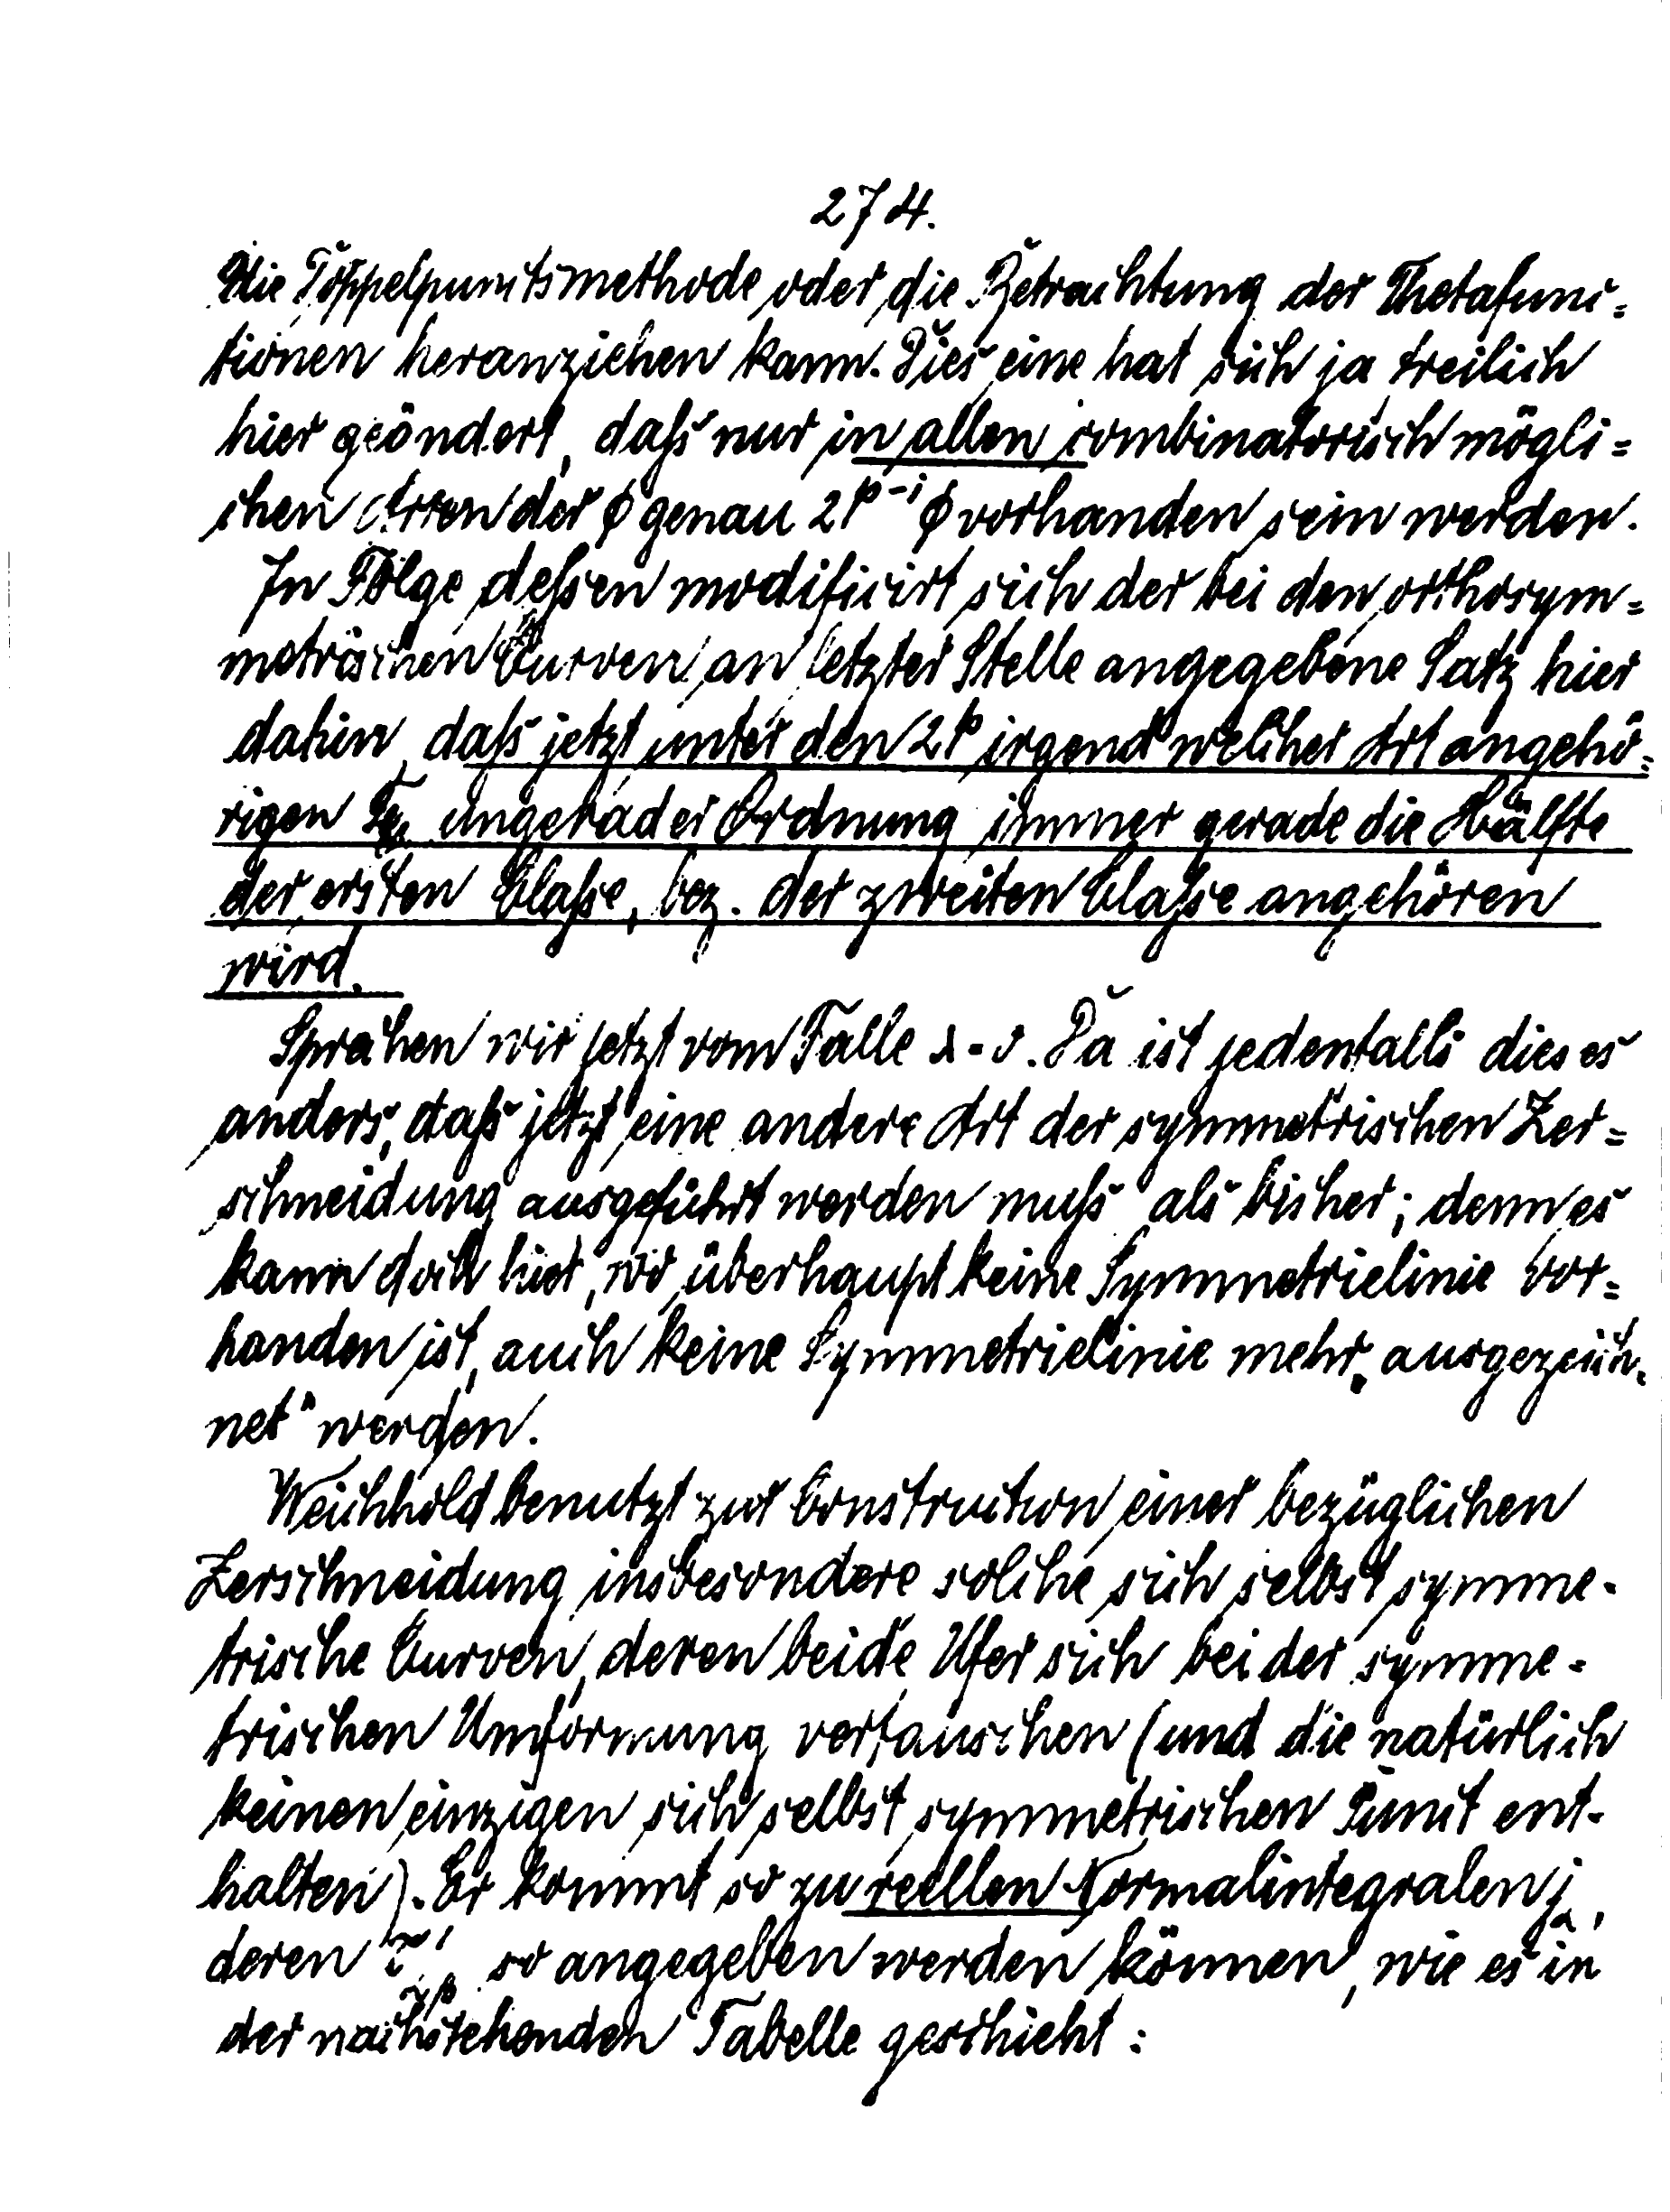 274.
die Doppelpunctsmethode oder die Betrachtung der Thetafunc=
tionen heranziehen kann. Dies eine hat sich ja freilich
hier geändert, daß nur in allen combinatorisch mögli=
chen Arten der ϕ genau 2^{p-1} ϕ vorhanden sein werden.
In Folge deßen modificirt sich der bei den orthosym=
metrischen Curven an letzter Stelle angegebene Satz hier
dahin, daß jetzt unter den 2^p irgend welcher Art angehö=
rigen ungerader Ordnung immer gerade die Hälfte
der ersten Claße, bez. der zweiten Claße angehören
wird.
Sprechen wir jetzt vom Falle λ=0. Da ist jedenfalls dieses
anders, daß jetzt eine andere Art der symmetrischen Zer=
schneidung ausgeführt werden muß als bisher; denn es
kann doch hier, wo überhaupt keine Symmetrielinie vor=
handen ist, auch keine Symmetrielinie mehr „ausgezeich=
net“ werden.
Weichhold benutzt zur Construction einer bezüglichen
Zerschneidung insbesondere solche sich selbst symme-
trische Curven, deren beide Ufer sich bei der symme-
trischen Umformung vertauschen (und die natürlich
keinen einzigen sich selbst symmetrischen Punct ent-
halten). Er kommt so zu reellen Normalintegralen j_α,
deren τ'_{αβ} so angegeben werden können, wie es in
der nachstehenden Tabelle geschieht: